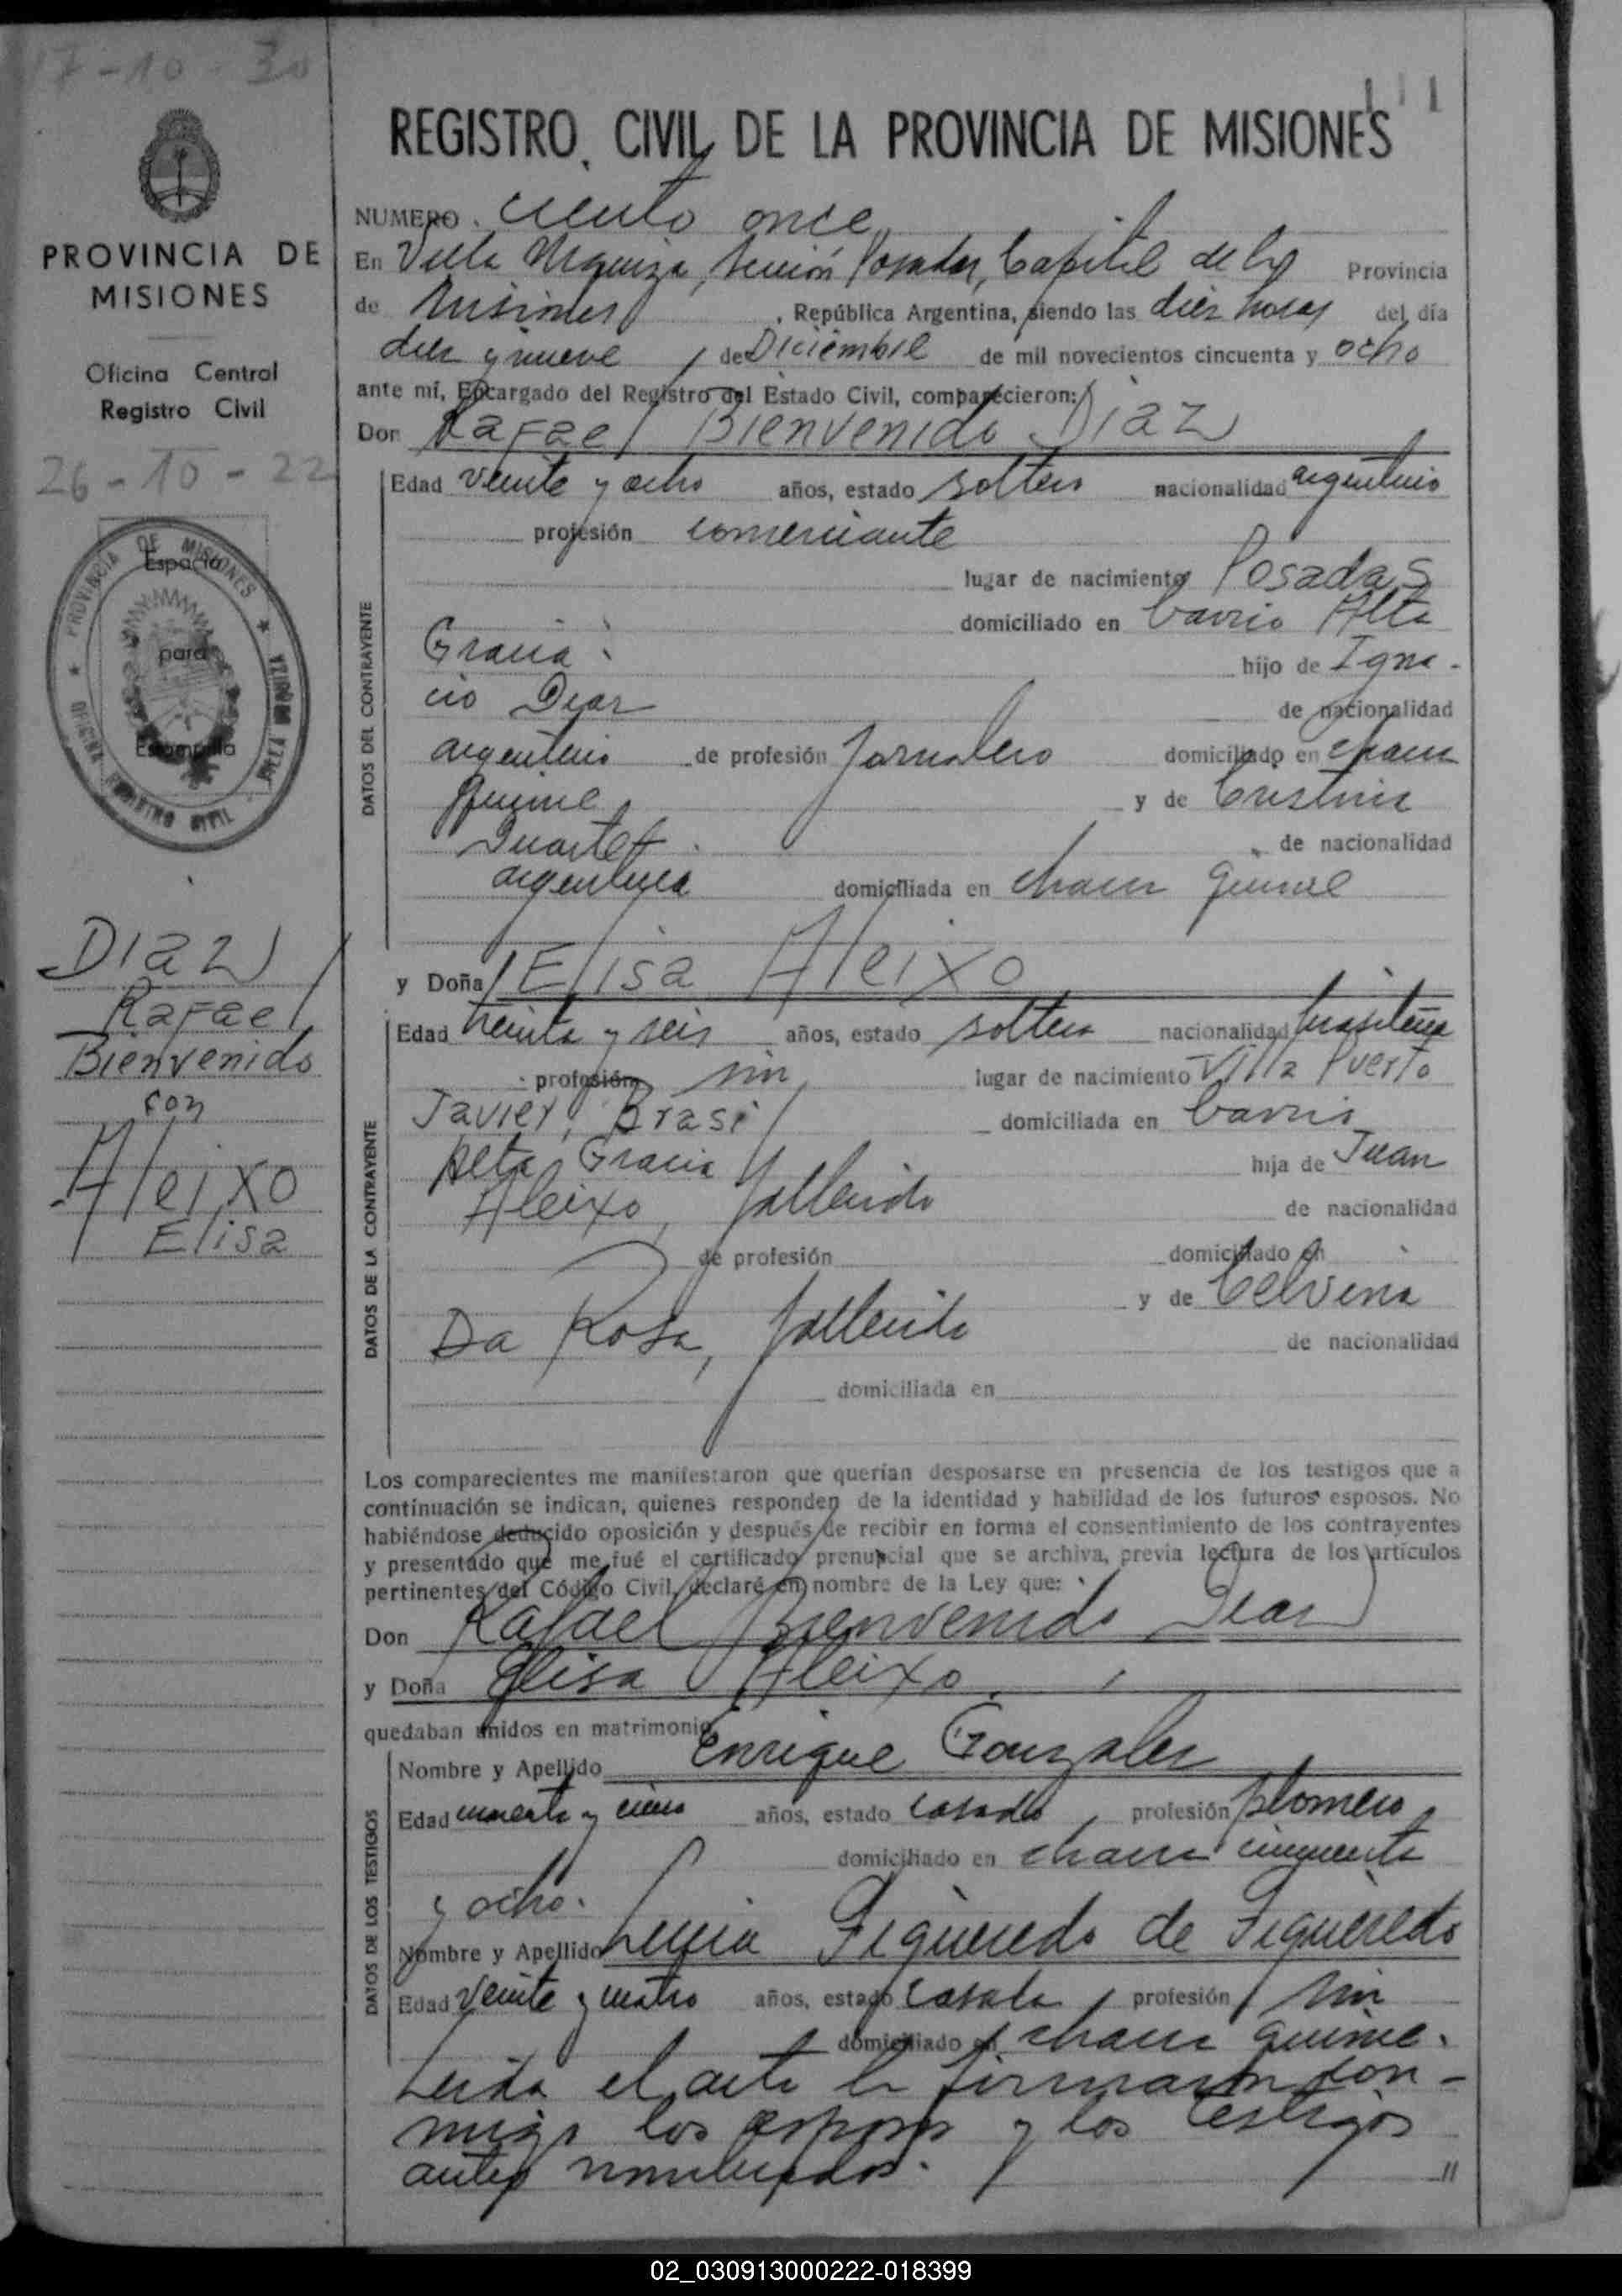 17-10-30
111
REGISTRO CIVIL DE LA PROVINCIA DE MISIONES
PROVINCIA DE
MISIONES
Oficina Central
Registro Civil
26-10-22
PROVINCIA DE MISIONES
OFICINA REGISTRO CIVIL VILLA URQUIZA
Espacio
para
Estampilla
Diaz
Rafael
Bienvenido
con
Aleixo
Elisa
NUMERO ciento once
En Villa Urquiza, Sección Posadas, Capital de la Provincia
de Misiones, República Argentina, siendo las diez horas del día
diez y nueve de Diciembre de mil novecientos cincuenta y ocho
ante mí, Encargado del Registro del Estado Civil, comparecieron:
Don Rafael Bienvenido Diaz
DATOS DEL CONTRAYENTE
Edad veinte y ocho años, estado soltero nacionalidad argentino
profesión comerciante
lugar de nacimiento Posadas
domiciliado en barrio Alta
Gracia hijo de Igna-
cio Diaz de nacionalidad
argentino de profesión Jornalero domiciliado en chacra
quince y de Cristina
Duarte de nacionalidad
argentina domiciliada en chacra quince
y Doña Elisa Aleixo
DATOS DE LA CONTRAYENTE
Edad treinta y seis años, estado soltera nacionalidad brasileña
profesión sin lugar de nacimiento Villa Puerto
Javier, Brasil domiciliada en barrio
Alta Gracia hija de Juan
Aleixo, fallecido de nacionalidad
de profesión domiciliado en
y de Celvina
Da Rosa, fallecida de nacionalidad
domiciliada en
Los comparecientes me manifestaron que querían desposarse en presencia de los testigos que a
continuación se indican, quienes responden de la identidad y habilidad de los futuros esposos. No
habiéndose deducido oposición y después de recibir en forma el consentimiento de los contrayentes
y presentado que me fué el certificado prenupcial que se archiva, previa lectura de los artículos
pertinentes del Código Civil, declaré en nombre de la Ley que:
Don Rafael Bienvenido Diaz
y Doña Elisa Aleixo
quedaban unidos en matrimonio,
DATOS DE LOS TESTIGOS
Nombre y Apellido Enrique Gonzalez
Edad cuarenta y cinco años, estado casado, profesión plomero
domiciliado en chacra cincuenta
y ocho.
Nombre y Apellido Lucia Figueredo de Figueredo
Edad veinte y cuatro años, estado casada, profesión sin
domiciliado en chacra quince.
Leida el acta la firmaron con-
migo los esposos y los testigos
antes nombrados. //
02_030913000222-018399